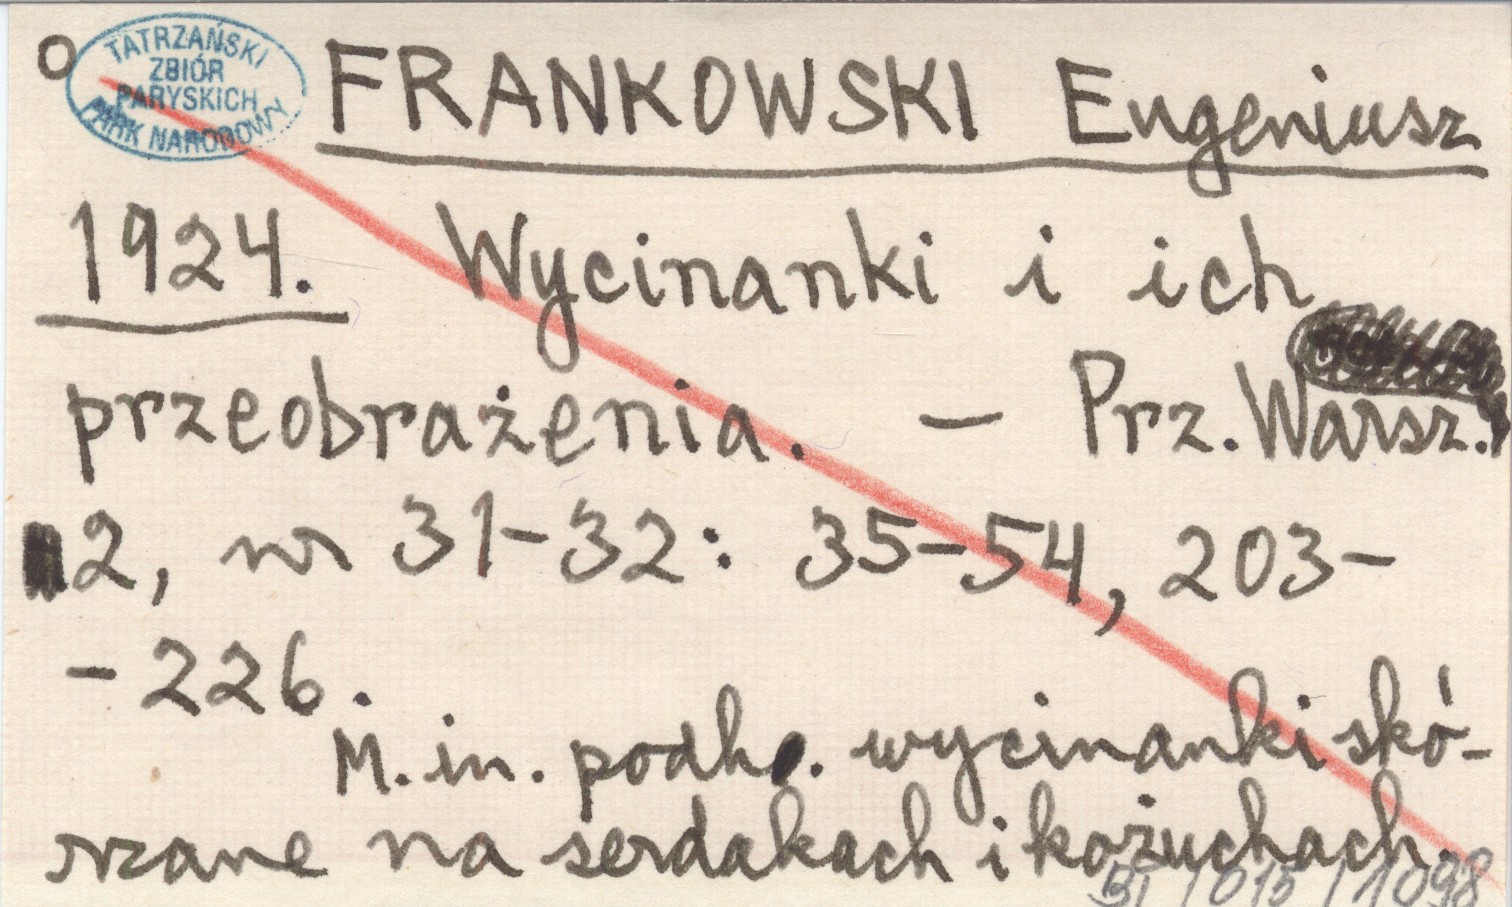 O
TATRZAŃSKI
ZBIÓR
PARYSKICH
PARK NARODOWY
FRANKOWSKI Eugeniusz
1924. Wycinanki i ich
przeobrażenia. – Prz. Warsz.
2, nr 31-32: 35-54, 203-
-226.
M. in. podh. wycinanki skó-
rzane na serdakach i kożuchach.
BI / 015 / 1098